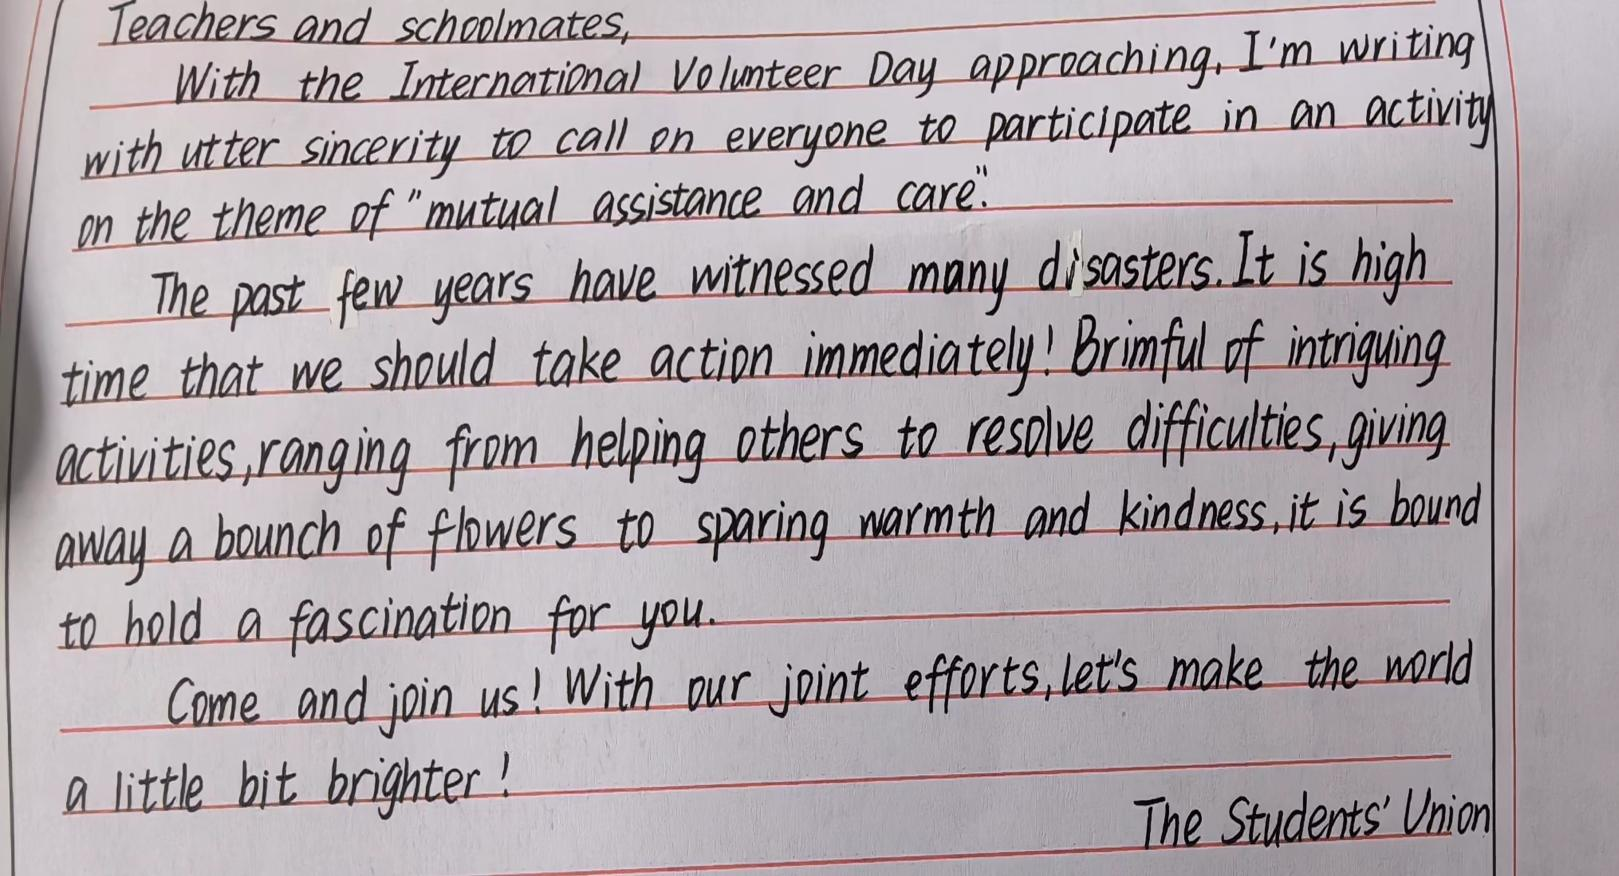 Teachers and schoolmates,
With the International Volunteer Day approaching, I'm writing
with utter sincerity to call on everyone to participate in an activity
on the theme of "mutual assistance and care".
The past few years have witnessed many disasters. It is high
time that we should take action immediately! Brimful of intriguing
activities, ranging from helping others to resolve difficulties, giving
away a bounch of flowers to sparing warmth and kindness, it is bound
to hold a fascination for you.
Come and join us! With our joint efforts, let's make the world
a little bit brighter!
The Students' Union